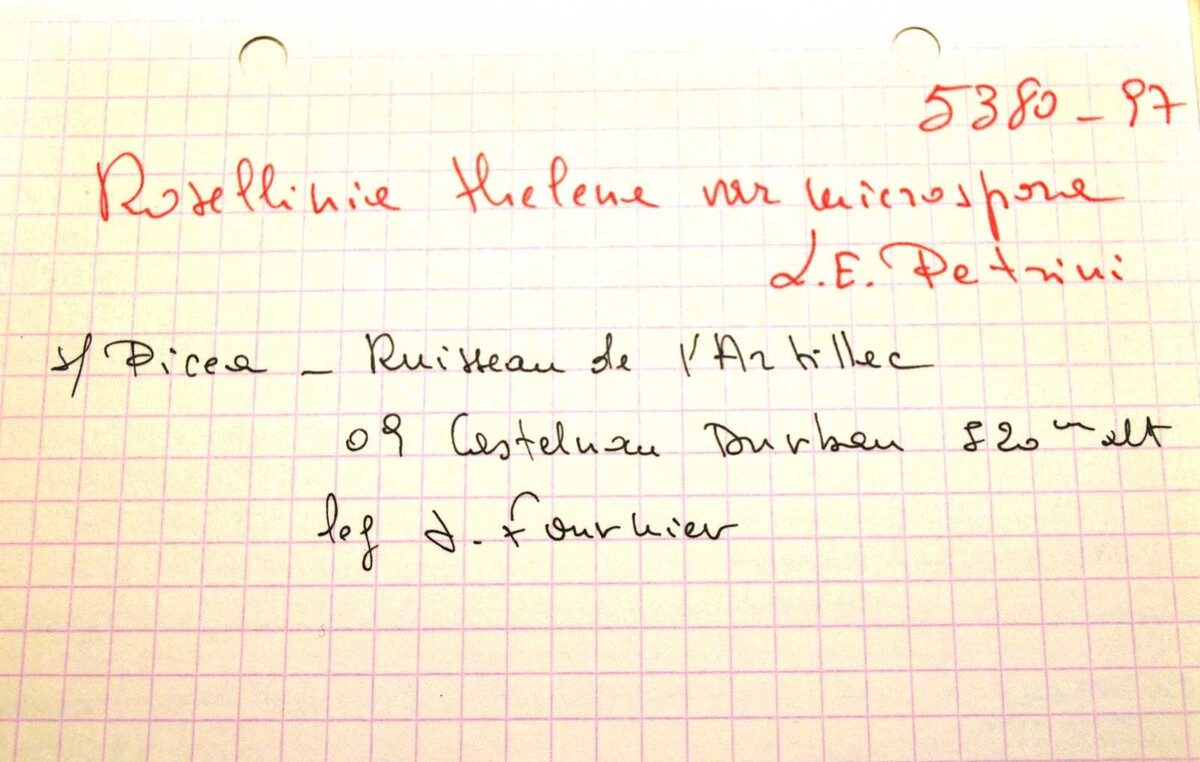 5380 - 97
Rosellinia thelena var microspora
L.E. Petrini
s/ Picea - Ruisseau de l'Artillac
09 Castelnau Durban 820 m alt
leg J. Fournier